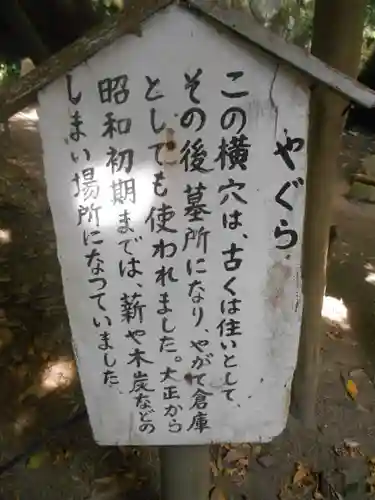 やぐら
この横穴は、古くは住いとして、
その後墓所になり、やがて倉庫
としても使われました。大正から
昭和初期までは、薪や木炭などの
しまい場所になつていました。